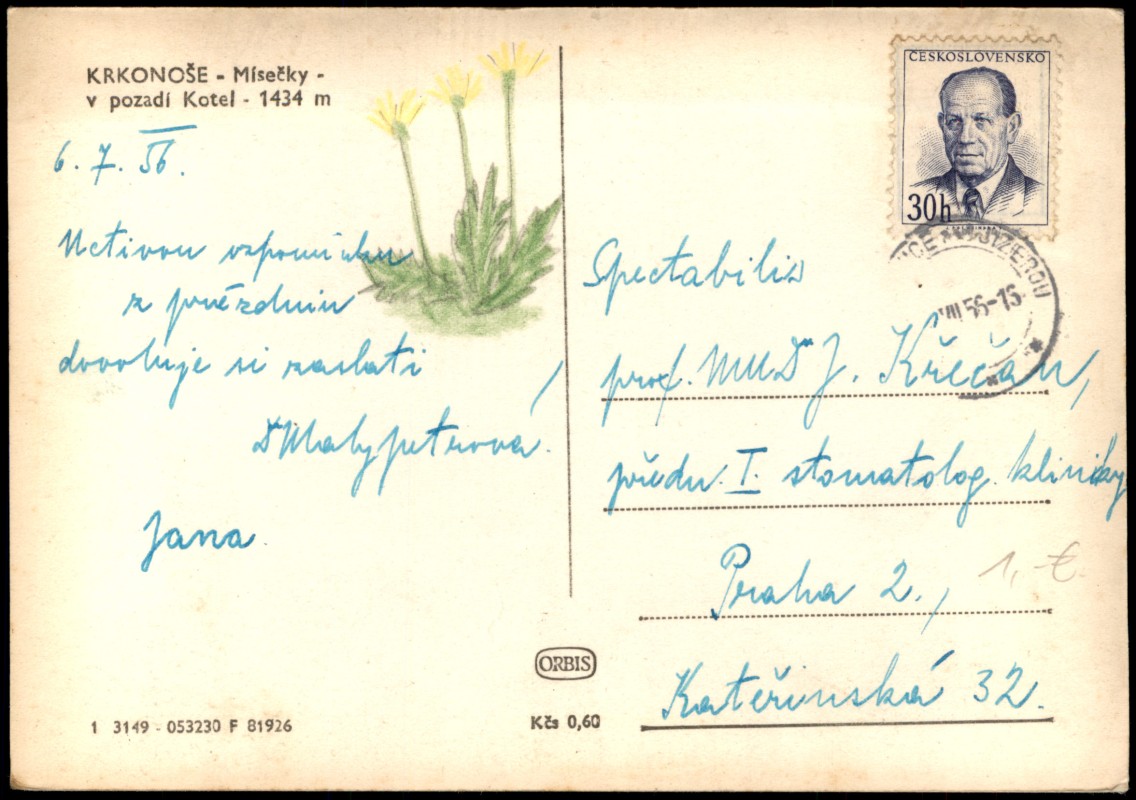 KRKONOŠE - Mísečky -
v pozadí Kotel - 1434 m
6. 7. 56.
Uctivou vzpomínku
z prázdnin
dovoluje si zaslati
DMalypetrová.
Jana
1 3149 - 053230 F 81926
ORBIS
Kčs 0,60
ČESKOSLOVENSKO
30h
JIZEROU
VII 56-16
Spectabilis
prof. MUDr J. Křečan,
předn. I. stomatolog. kliniky
Praha 2.,
1,-€
Kateřinská 32.